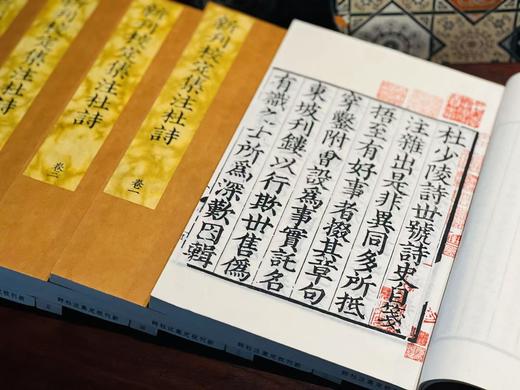 杜少陵詩丗號詩史自箋
注雜出是非異同多所抵
牾至有好事者掇其章句
穿鑿附會設爲事實託名
東坡刋鏤以行欺丗售僞
有識之士所爲深歎因輯
新刊校定集注杜詩
卷一
新刊校定集注杜詩
卷二